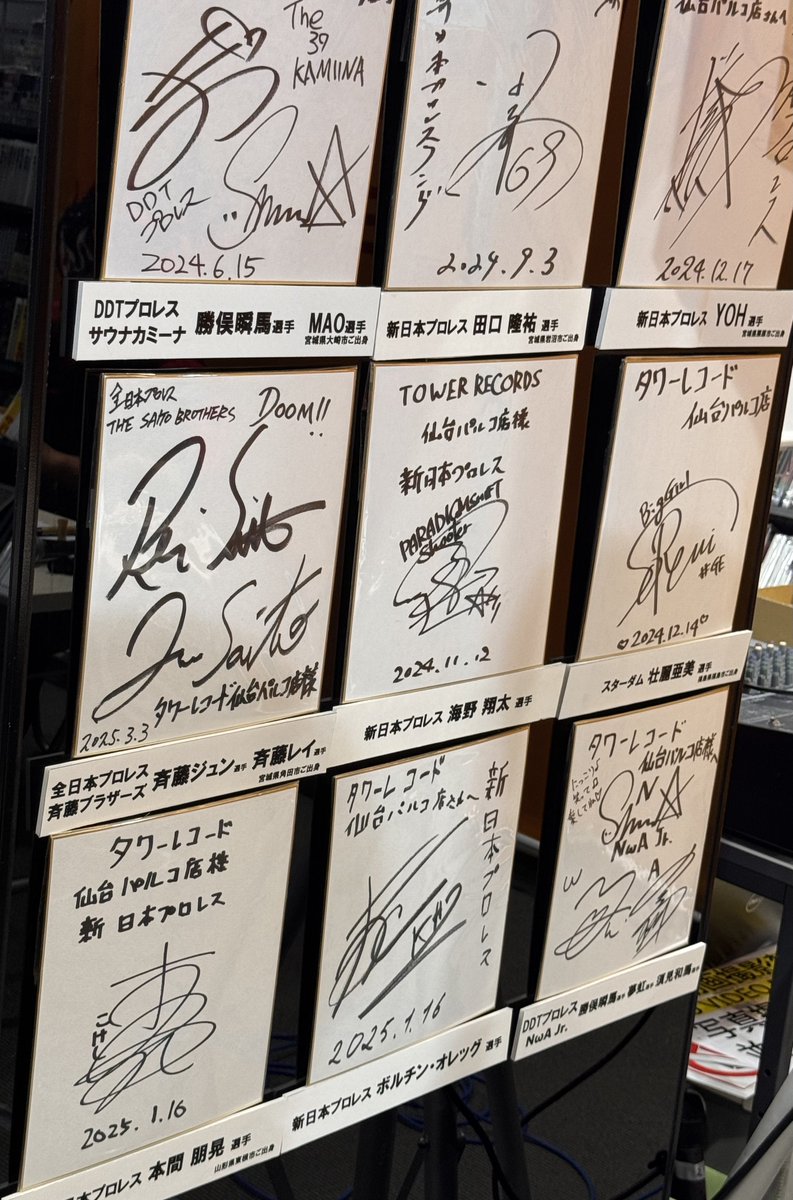 The
39
KAMIINA
DDT
プロレス
2024.6.15
DDTプロレス
サウナカミーナ 勝俣瞬馬選手 MAO選手
宮城県大崎市ご出身
69
2024.9.3
新日本プロレス 田口 隆祐 選手
宮城県岩沼市ご出身
仙台パルコ店さんへ
2024.12.17
新日本プロレス YOH 選手
全日本プロレス
THE SAITO BROTHERS DOOM!!
Rei Saito
Jun Saito
タワーレコード仙台パルコ店様
2025.3.3
全日本プロレス
斉藤ブラザーズ 斉藤ジュン選手 斉藤レイ選手
宮城県角田市ご出身
TOWER RECORDS
仙台パルコ店様
新日本プロレス
Shooter
2024.11.12
新日本プロレス 海野 翔太 選手
タワーレコード
仙台パルコ店
BigGirl
♡2024.12.14♡
スターダム 壮麗亜美 選手
タワーレコード
仙台パルコ店様
新日本プロレス
こけし
2025.1.16
本間 朋晃 選手
山形県東根市ご出身
タワーレコード
仙台パルコ店さんへ
新日本プロレス
2025.1.16
新日本プロレス ボルチン・オレッグ 選手
タワーレコード
仙台パルコ店様へ
N
NwA Jr.
W
A
DDTプロレス
NwA Jr.
勝俣瞬馬選手 夢虹選手 須見和馬選手
VIDEO